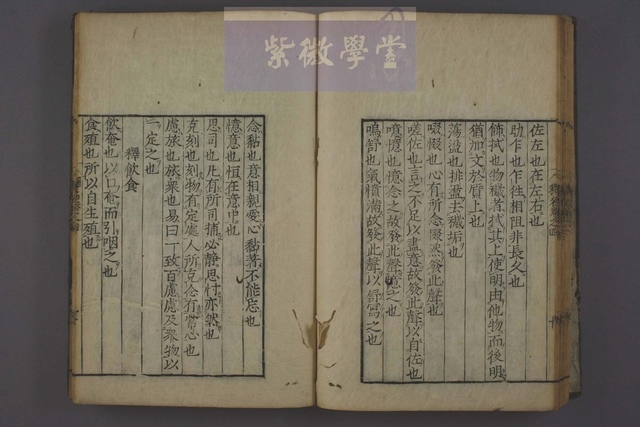 紫微學堂
佐左也在左右也
助乍也乍往相阻非長久也
飾拭也物穢者拭其上使明由他物而後明
猶加文於質上也
蕩盪也排盪去穢垢也
啜惙也心有所念惙然發此聲也
嗟佐也言之不足以盡意故發此聲以自佐也
噫憶也憶念之故發此聲憶之也
嗚舒也氣憤滿故發此聲以舒寫之也
念黏也意相親愛心黏著不能忘也
憶意也恒在意中也
思司也凡有所司捕必靜思忖亦然也
克刻也刻物有定處人所克念有常心也
慮旅也旅衆也易曰一致百慮慮及衆物以
一定之也
釋飲食
飲奄也以口奄而引咽之也
食殖也所以自生殖也